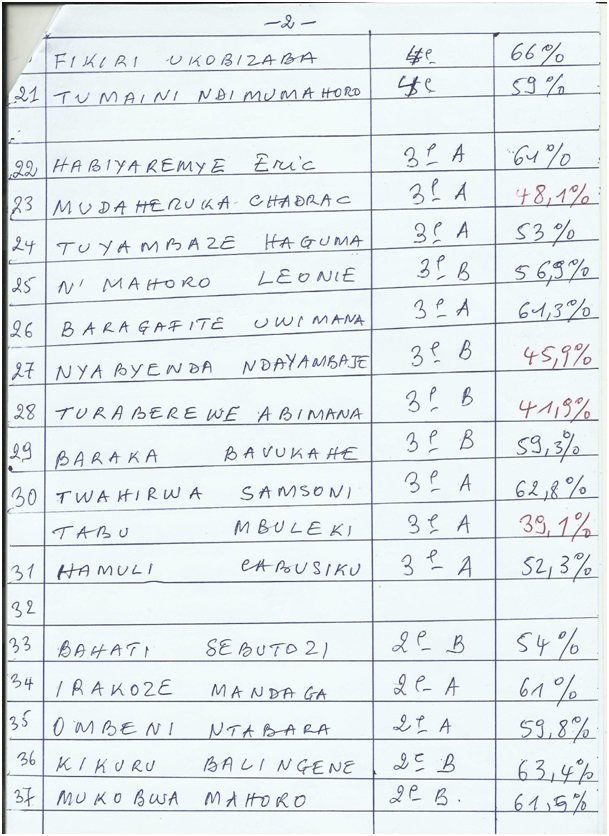 -2-
FIKIRI UKOBIZABA 4e 66%
21 TUMAINI NDIMUMAHORO 4e 59%
22 HABIYAREMYE Eric 3e A 61%
23 MUDAHERUKA CHADRAC 3e A 48,1%
24 TUYAMBAZE HAGUMA 3e A 53%
25 N'MAHORO LEONIE 3e B 56,9%
26 BARAGAFITE UWIMANA 3e A 61,3%
27 NYABYENDA NDAYAMBAJE 3e B 45,9%
28 TURABEREWE ABIMANA 3e B 41,9%
29 BARAKA BAVUKAHE 3e B 59,3%
30 TWAHIRWA SAMSONI 3e A 62,8%
TABU MBULEKI 3e A 39,1%
31 HAMULI CABUSIKU 3e A 52,3%
32
33 BAHATI SEBUTOZI 2e B 54%
34 IRAKOZE MANDAGA 2e A 61%
35 OMBENI NTABARA 2e A 59,8%
36 KIKURU BALINGENE 2e B 63,4%
37 MUKOBWA MAHORO 2e B. 61,5%